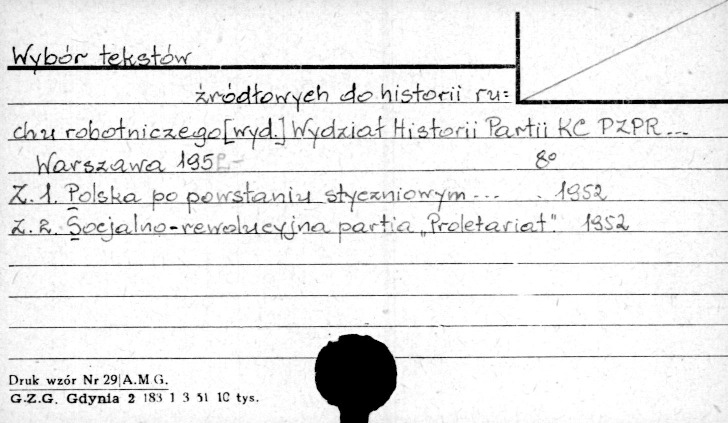 Wybór tekstów
źródłowych do historii ru=
chu robotniczego [wyd.] Wydział Historii Partii KC PZPR...
Warszawa 1952- 8°
Z. 1. Polska po powstaniu styczniowym... . 1952
Z. 2. Socjalno-rewolucyjna partia „Proletariat". 1952
Druk wzór Nr 29|A.M.G.
G.Z.G. Gdynia 2 183 1 3 51 10 tys.